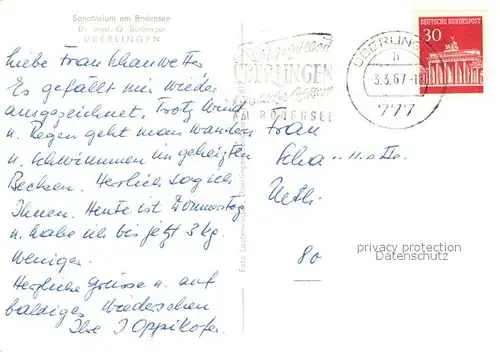 Sanatorium am Bodensee
Dr. med. O. Buchinger
ÜBERLINGEN
Liebe Frau
Es gefällt mir wieder
ausgezeichnet. Trotz Wind
u. Regen geht man wandern
u. schwimmen im geheizten
Becken. Herrlich sag ich
Ihnen. Heute ist Donnerstag
u. habe ich bis jetzt 3 kg.
weniger.
Herzliche Grüsse u. auf
baldiges Wiedersehen
Ihre J Oppikofer
ÜBERLINGEN
AM BODENSEE
ÜBERLINGEN
h
3.3.67-18
777
30
DEUTSCHE BUNDESPOST
Frau
80
privacy protection
Datenschutz